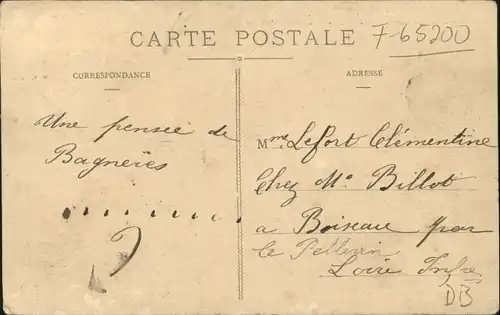 CARTE POSTALE
F 65200
CORRESPONDANCE
ADRESSE
Une pensée de
Bagnères
Mme Lefort Clémentine
Chez Mr Billot
a Boiseau par
Le Pellerin
Loire Infre
DB